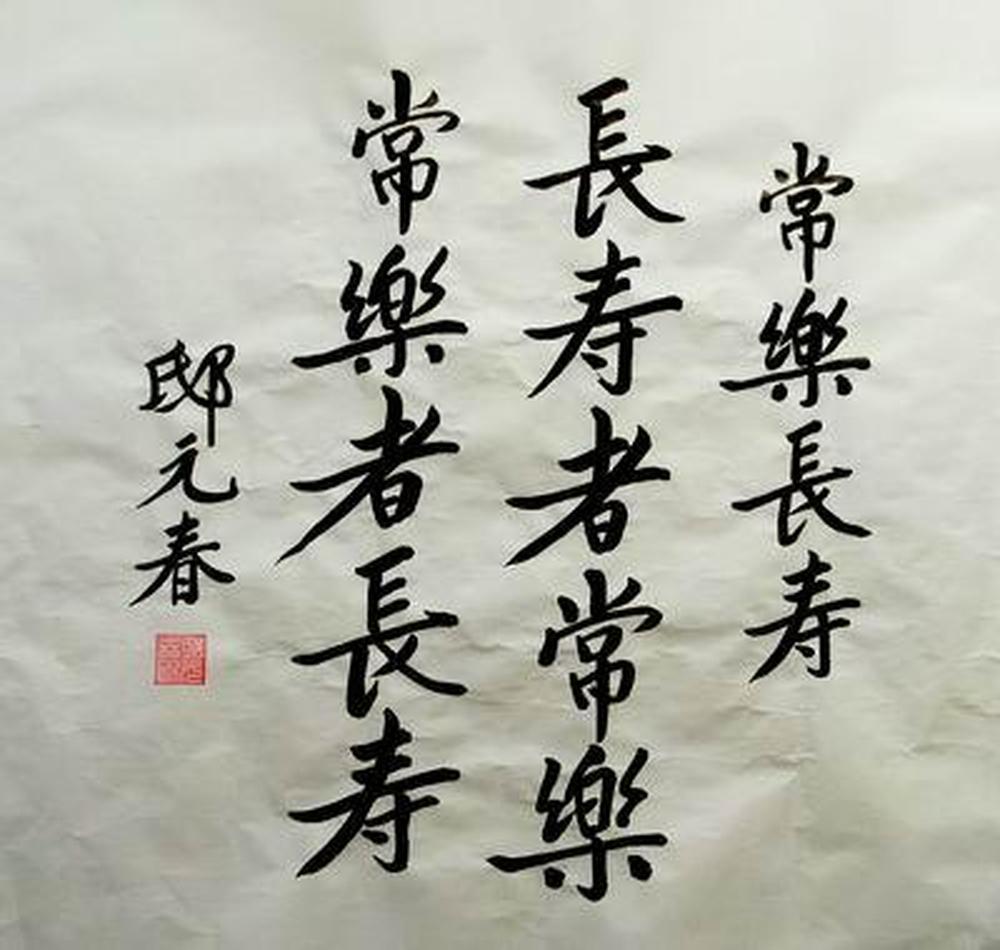 常樂長寿
長寿者常樂
常樂者長寿
邸元春